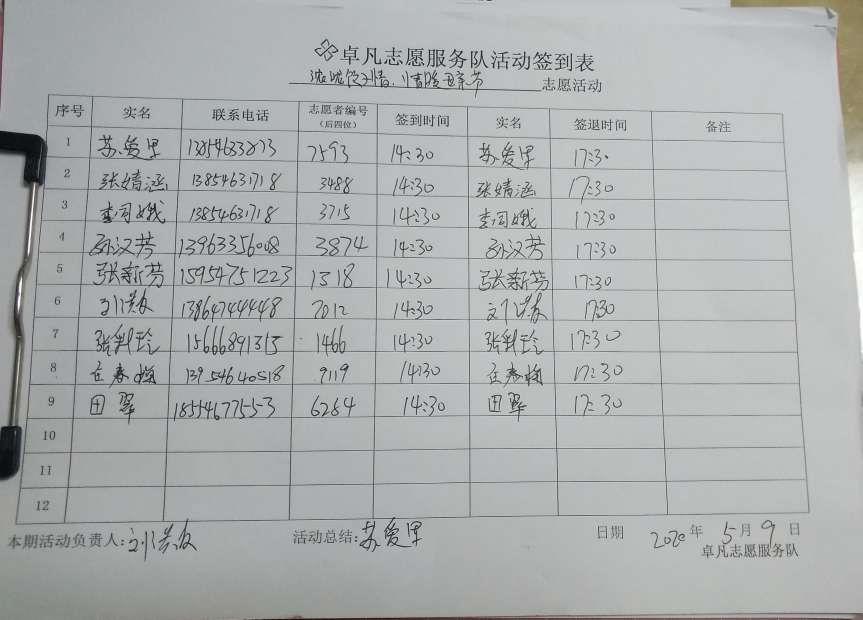 卓凡志愿服务队活动签到表
浓浓饺子情、情暖母亲节 志愿活动
序号 实名 联系电话 志愿者编号（后四位） 签到时间 实名 签退时间 备注
1 苏爱华 13854633873 7593 14:30 苏爱华 17:30
2 张婧涵 13854631718 3488 14:30 张婧涵 17:30
3 13854631718 3715 14:30 17:30
4 孙汉芳 13963356008 3874 14:30 孙汉芳 17:30
5 张新芳 15954751223 1518 14:30 张新芳 17:30
6 13864744448 7012 14:30 1730
7 15666891315 1466 14:30 17:30
8 庄春梅 13954640518 9119 14:30 庄春梅 17:30
9 田翠 18554677553 6264 14:30 田翠 17:30
10
11
12
本期活动负责人: 活动总结: 苏爱华 日期 2020年5月9日
卓凡志愿服务队